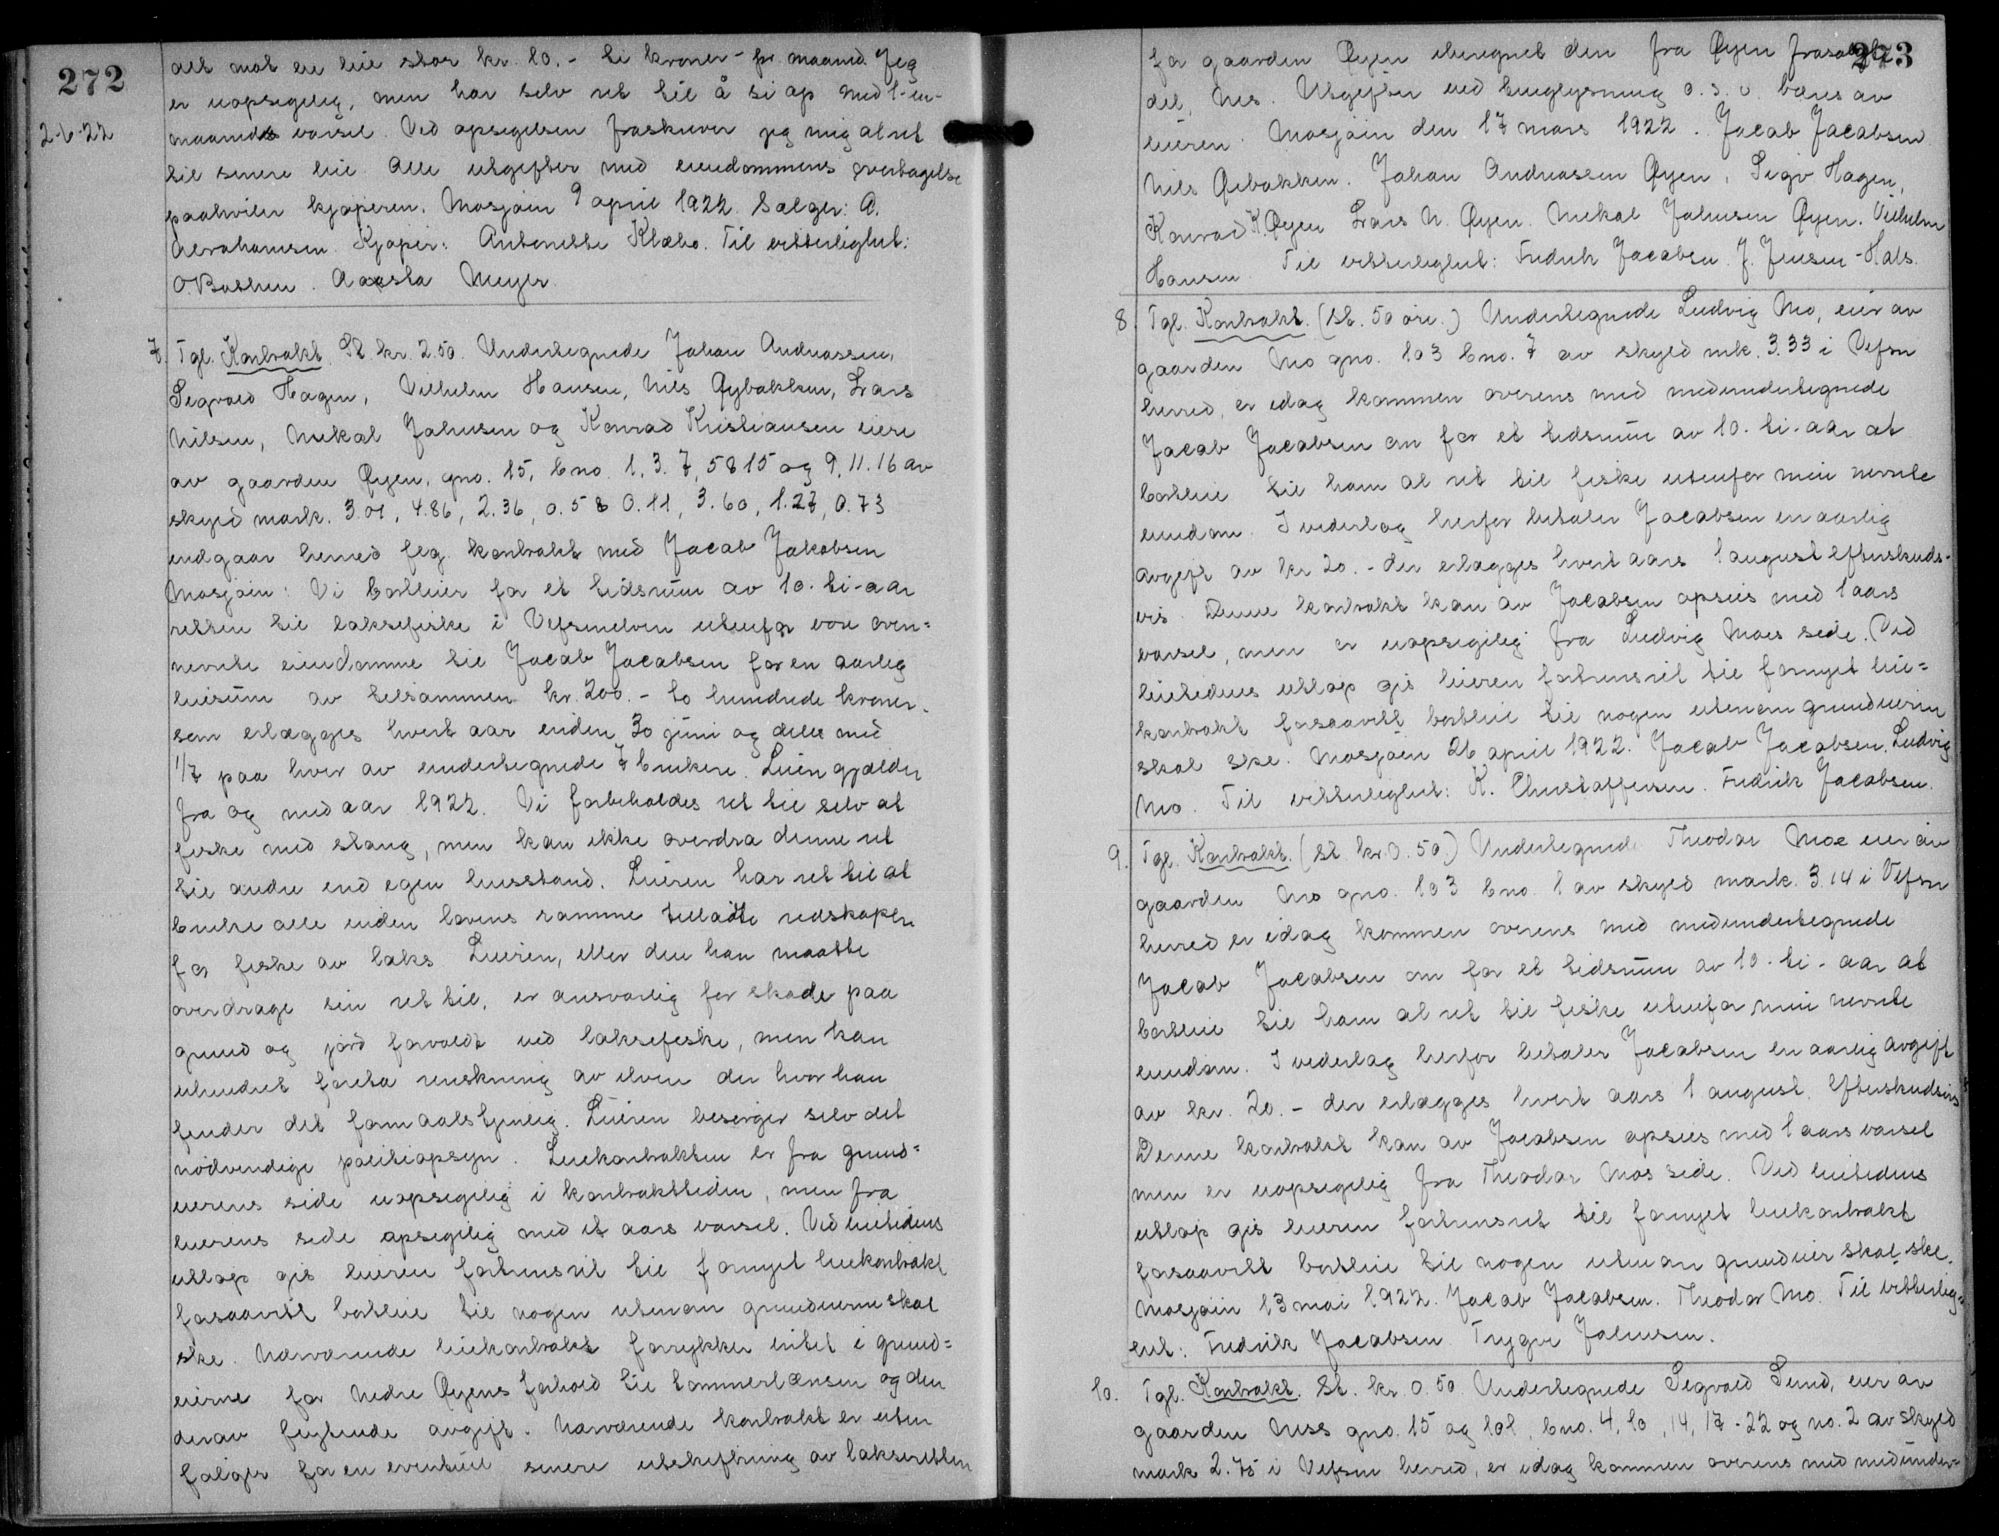 272
2-6-22
alt mot en leie stor kr. 10.- ti kroner - pr. maaned. Jeg
er uopsigelig, men har selv ret til å si op med 1-en-
maaneds varsel. Ved opsigelsen fraskriver jeg mig al ret
til senere leie. Alle utgifter med eiendommens overtagelse
paahviler kjøperen. Mosjøen 9 april 1922. Sælger: A.
Abrahamsen. Kjøper: Antonette Klæbo. Til vitterlighet:
O. Bathen. Aasta Meyer.
7. Tgl. Kontrakt. St. kr. 2.50. Undertegnede Johan Andreassen,
Sigvald Hagen, Vilhelm Hansen, Nils Øybakken, Lars
Nilsen, Mekal Johnsen og Konrad Kristiansen eiere
av gaarden Øyen, gno. 15, bno. 1, 3. 7, 5 8 15 og 9, 11. 16 av
skyld mark. 3.01, 4.86, 2.36, 0.58 0.11, 3.60, 1.27, 0.73
indgaar herved flg. kontrakt med Jacob Jakobsen
Mosjøen: Vi bortleier for et tidsrum av 10. ti-aar
retten til laksefiske i Vefsnelven utenfor vore oven=
nevnte eiendomme til Jacob Jacobsen for en aarlig
leiesum av tilsammen kr. 200.- to hundrede kroner.
som erlægges hvert aar inden 30 juni og deles med
1/7 paa hver av undertegnede 7 brukere. Leien gjælder
fra og med aar 1922. Vi forbeholdes ret til selv at
fiske med stang, men kan ikke overdra denne ret
til andre end egen husstand. Leieren har ret til at
bruke alle inden lovens ramme tilladte redskaper
for fiske av laks. Leieren, eller den han maatte
overdrage sin ret til, er ansvarlig for skade paa
grund og jord forvoldt ved laksefiske, men kan
uhindret foreta renskning av elven der hvor han
finder det formaalstjenlig. Leieren besørger selv det
nødvendige politiopsyn. Leiekontrakten er fra grund=
eierens side uopsigelig i kontrakttiden, men fra
leierens side opsigelig med et aars varsel. Ved leietidens
utløp gis leieren fortrinsret til fornyet leiekontrakt
forsaavitt bortleie til nogen utenom grundeierne skal
ske. Nærværende leiekontrakt forrykker intet i grund=
eierne for Nedre Øyens forhold til tømmerlænsen og den
derav flytende avgift. Nærværende kontrakt er uten
følger for en eventuel senere utskiftning av lakseretten
273
for gaarden Øyen iberegnet den fra Øyen frasolgte
del, Nes. Utgifter ved tinglysning o.s.v. bæres av
leieren. Mosjøen den 17 mars 1922. Jacob Jacobsen
Nils Øibakken. Johan Andreassen Øyen. Sigv. Hagen,
Konrad K. Øyen Lars N. Øyen. Mekal Johnsen Øyen. Vilhelm
Hansen. Til vitterlighet: Fredrik Jacobsen. J. Jensen-Hals.
8. Tgl. Kontrakt. (St. 50 øre.) Undertegnede Ludvig Mo, eier av
gaarden Mo gno. 103 bno. 7 av skyld mk. 3.33 i Vefsn
herred, er idag kommen overens med medundertegnede
Jacob Jacobsen om for et tidsrum av 10. ti-aar at
bortleie til ham al ret til fiske utenfor min nevnte
eiendom. I vederlag herfor betaler Jacobsen en aarlig
avgift av kr 20.- der erlægges hvert aars 1 august efterskuds-
vis. Denne kontrakt kan av Jacobsen opsies med 1 aars
varsel, men er uopsigelig fra Ludvig Moes side. Ved
leietidens utløp gis leieren fortrinsret til fornyet leie=
kontrakt forsaavitt bortleie til nogen utenom grundeieren
skal ske. Mosjøen 26 april 1922. Jacob Jacobsen. Ludvig
Mo. Til vitterlighet: K. Christoffersen. Fredrik Jacobsen.
9. Tgl. Kontrakt. (St. kr. 0.50.) Undertegnede Theodor Moe eier av
gaarden Mo gno. 103 bno. 1 av skyld mark. 3.14 i Vefsn
herred er idag kommen overens med medundertegnede
Jacob Jacobsen om for et tidsrum av 10. ti-aar at
bortleie til ham al ret til fiske utenfor min nevnte
eiendom. I vederlag herfor betaler Jacobsen en aarlig avgift
av kr. 20.- der erlægges hvert aars 1 august. Efterskudsvis
Denne kontrakt kan av Jacobsen opsies med 1 aars varsel
men er uopsigelig fra Theodor Moes side. Ved leietidens
utløp gis leieren fortrinsret til fornyet leiekontrakt
forsaavitt bortleie til nogen utenom grundeier skal ske.
Mosjøen 13 mai 1922. Jacob Jacobsen. Theodor Mo. Til vitterlig=
het: Fredrik Jacobsen. Trygve Johnsen.
10. Tgl. Kontrakt. St. kr. 0.50. Undertegnede Sigvald Lund, eier av
gaarden Ness gno. 15 og 101, bno. 4, 10, 14, 17-22 og no. 2 av skyld
mark 2.75 i Vefsn herred, er idag kommen overens med medunder=